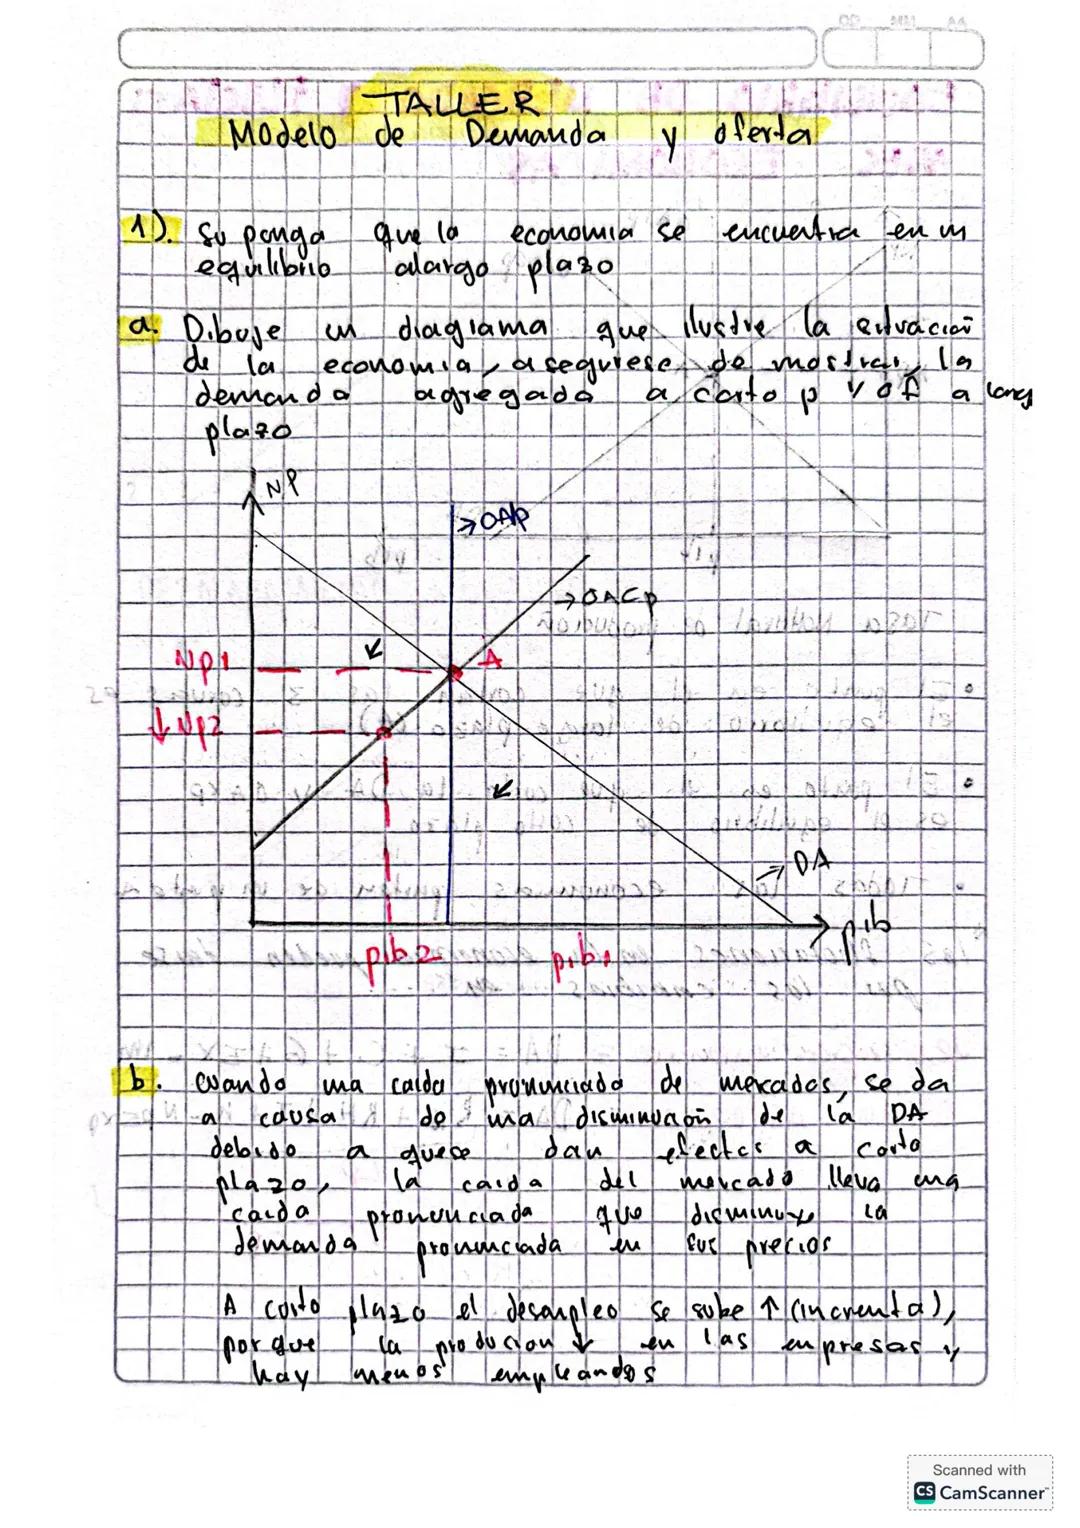 TALLER
Modelo de Demanda y oferta
1). Suponga que la economia se encuentra en un
equilibrio alargo plazo
a. Dibuje un diagrama que ilustre la situacion
de la economia, asegurese de mostrar la
demanda agregada a corto p y of a largo
plazo
NP
→OAlp
→OACp
Np1
A
↓Np2
→DA
pib
pib2 pib1
b. cuando una caida pronunciada de mercados, se da
a causa de una disminucion de la DA
debido a quese dan efectos a corto
plazo, la caida del mercado lleva una
caida pronunciada que disminuye la
demanda pronunciada en sus precios
A corto plazo el desempleo se sube ↑ (increnta),
porque la producion ↓ en las empresas y
hay menos empleandos
Scanned with
CS CamScanner